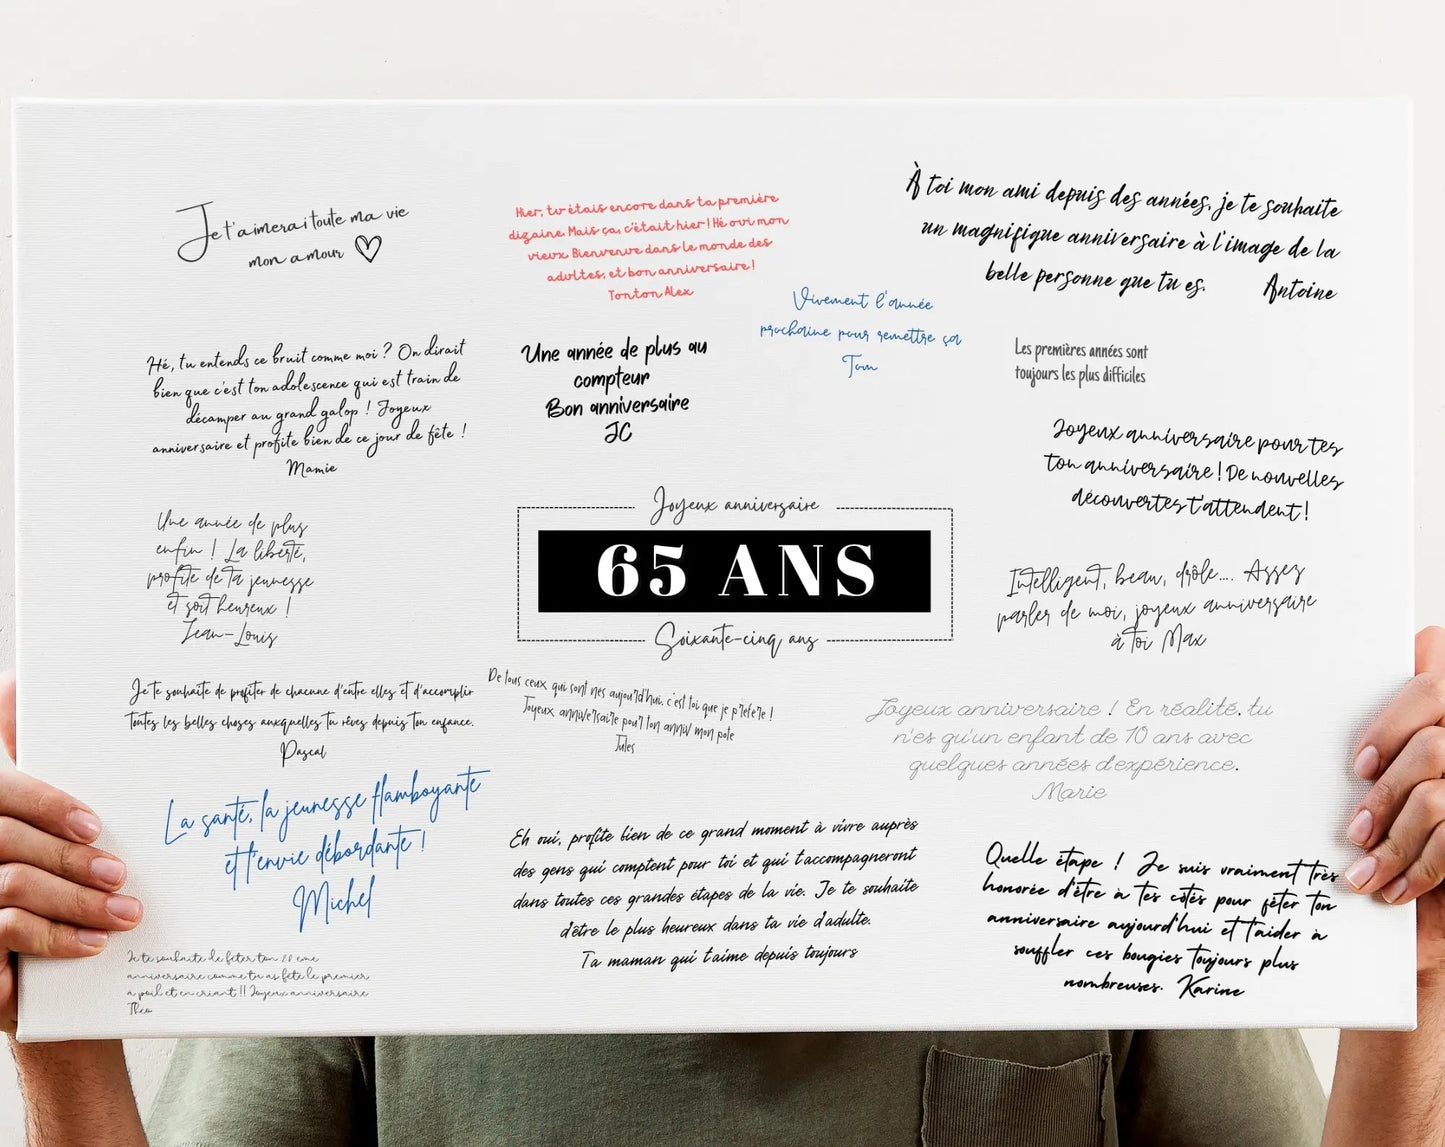 Je t'aimerai toute ma vie
mon amour
Hier, tu étais encore dans ta première
dizaine. Mais ça, c'était hier ! Hé oui mon
vieux. Bienvenue dans le monde des
adultes, et bon anniversaire !
Tonton Alex
À toi mon ami depuis des années, je te souhaite
un magnifique anniversaire à l'image de la
belle personne que tu es. Antoine
Vivement l'année
prochaine pour remettre ça
Tom
Hé, tu entends ce bruit comme moi ? On dirait
bien que c'est ton adolescence qui est train de
décamper au grand galop ! Joyeux
anniversaire et profite bien de ce jour de fête !
Mamie
Une année de plus au
compteur
Bon anniversaire
JC
Les premières années sont
toujours les plus difficiles
Joyeux anniversaire pour tes
ton anniversaire ! De nouvelles
découvertes t'attendent !
Une année de plus
enfin ! La liberté,
profite de ta jeunesse
et soit heureux !
Jean-Louis
Joyeux anniversaire
65 ANS
Soixante-cinq ans
Intelligent, beau, drôle.... Assez
parler de moi, joyeux anniversaire
à toi Max
Je te souhaite de profiter de chacune d'entre elles et d'accomplir
toutes les belles choses auxquelles tu rêves depuis ton enfance.
Pascal
De tous ceux qui sont nés aujourd'hui, c'est toi que je préfère !
Joyeux anniversaire pour ton anniv mon pote
Jules
Joyeux anniversaire ! En réalité, tu
n'es qu'un enfant de 10 ans avec
quelques années d'expérience.
Marie
La santé, la jeunesse flamboyante
et l'envie débordante !
Michel
Eh oui, profite bien de ce grand moment à vivre auprès
des gens qui comptent pour toi et qui t'accompagneront
dans toutes ces grandes étapes de la vie. Je te souhaite
d'être le plus heureux dans ta vie d'adulte.
Ta maman qui t'aime depuis toujours
Quelle étape ! Je suis vraiment très
honorée d'être à tes côtés pour fêter ton
anniversaire aujourd'hui et t'aider à
souffler ces bougies toujours plus
nombreuses. Karine
Je te souhaite de fêter ton 20 ème
anniversaire comme tu as fêté le premier
a poil et en criant !! Joyeux anniversaire
Théo